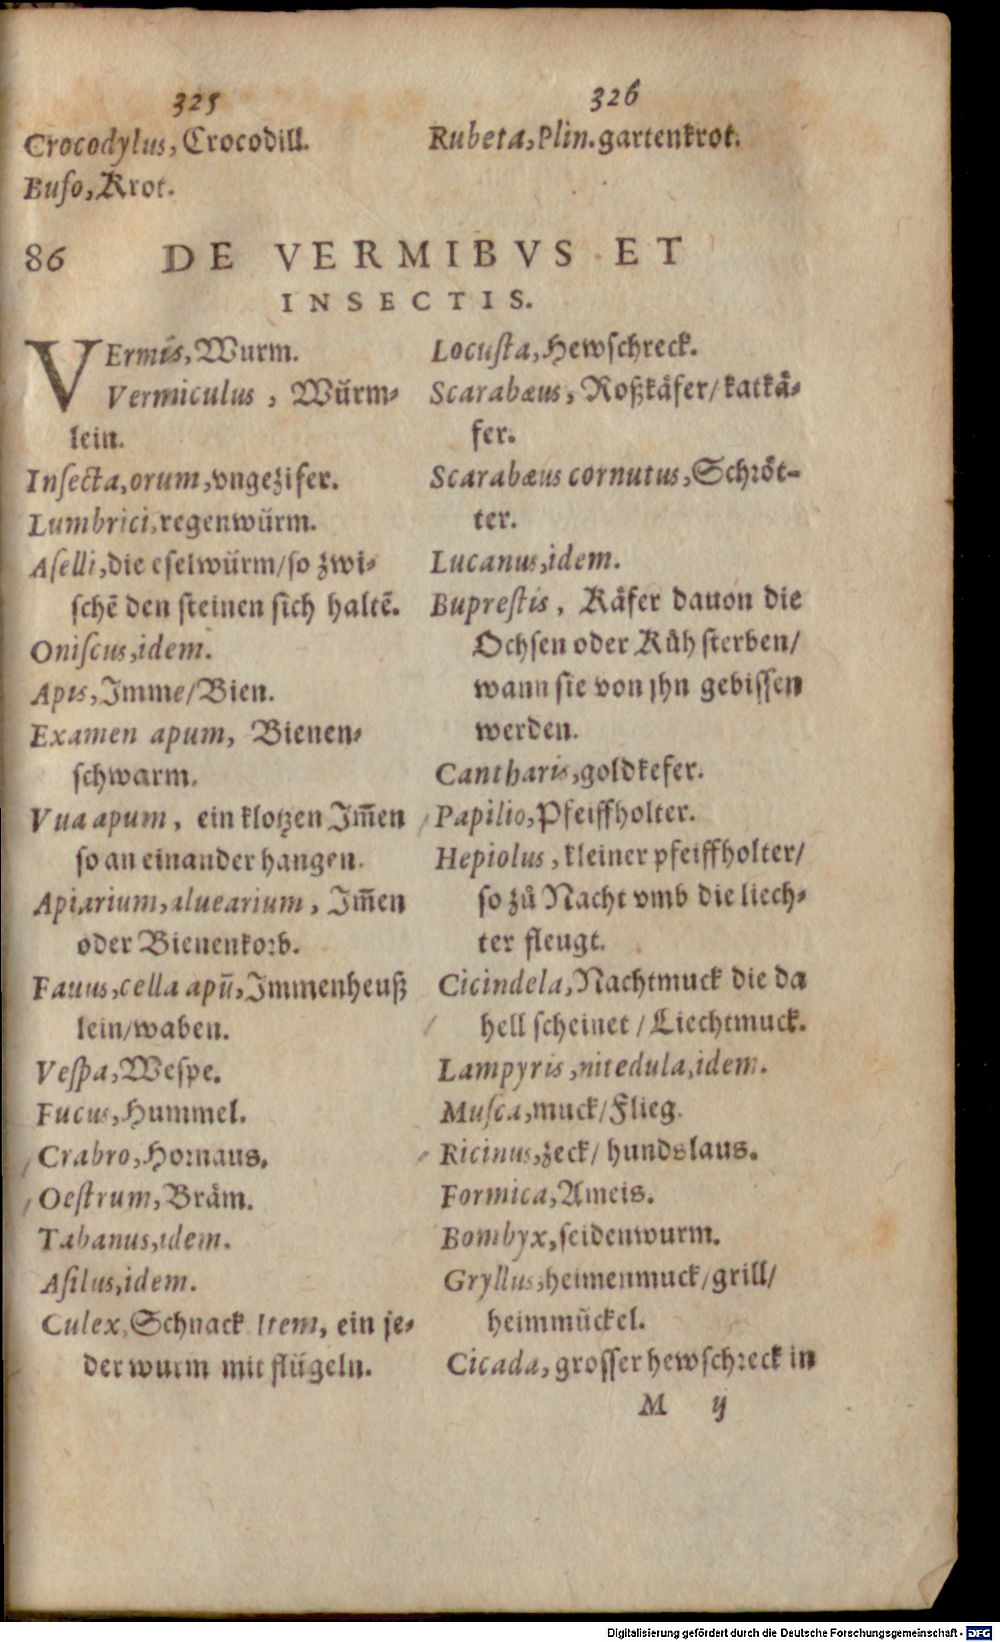 325
Crocodylus, Crocodill.
Bufo, Krot.
326
Rubeta, Plin. gartenkrot.
86 DE VERMIBVS ET
INSECTIS.
VErmis, Wurm.
Vermiculus, Wuͤrm-
lein.
Insecta, orum, vngezifer.
Lumbrici, regenwuͤrm.
Aselli, die eselwuͤrm/ so zwi-
schē den steinen sich haltē.
Oniscus, idem.
Apis, Imme/ Bien.
Examen apum, Bienen-
schwarm.
Vua apum, ein klotzen Im̄en
so an einander hangen.
Apiarium, aluearium, Im̄en
oder Bienenkorb.
Fauus, cella apū, Immenheuß
lein/ waben.
Vespa, Wespe.
Fucus, Hummel.
Crabro, Hornaus.
Oestrum, Braͤm.
Tabanus, idem.
Asilus, idem.
Culex, Schnack Item, ein je-
der wurm mit fluͤgeln.
Locusta, Hewschreck.
Scarabæus, Roßkaͤfer/ katkaͤ-
fer.
Scarabæus cornutus, Schroͤt-
ter.
Lucanus, idem.
Buprestis, Kaͤfer dauon die
Ochsen oder Kuͤh sterben/
wann sie von jhn gebissen
werden.
Cantharis, goldkefer.
Papilio, Pfeiffholter.
Hepiolus, kleiner pfeiffholter/
so zů Nacht vmb die liech-
ter fleugt.
Cicindela, Nachtmuck die da
hell scheinet/ Liechtmuck.
Lampyris, nitedula, idem.
Musca, muck/ Flieg.
Ricinus, zeck/ hundslaus.
Formica, Ameis.
Bombyx, seidenwurm.
Gryllus, heimenmuck/ grill/
heimmuͤckel.
Cicada, grosser hewschreck in
M ij
Digitalisierung gefördert durch die Deutsche Forschungsgemeinschaft - DFG